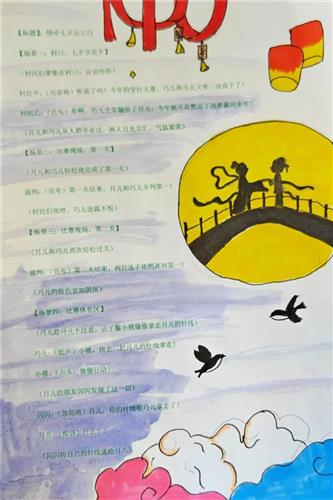 【标题】：情牵七夕话乞巧
【场景一：村口，七夕节前夕】
（村民们聚集在村口，议论纷纷）
村民甲：（兴奋地）听说了吗？今年的穿针大赛，巧儿和月儿又要一决高下了！
村民乙：（点头）是啊，巧儿去年输给了月儿，今年她可是憋足了劲要赢回来呢！
（月儿和巧儿从人群中走过，两人目光交汇，气氛紧张）
【场景二：比赛现场，第一关】
（月儿和巧儿轻松地完成了第一关）
裁判：（宣布）第一关结束，月儿和巧儿并列第一！
（村民们欢呼，巧儿面露不悦）
【场景三：比赛现场，第二关】
（月儿和巧儿再次轻松过关）
裁判：（宣布）第二关结束，两位选手依然并列第一！
（巧儿的脸色更加阴沉）
【场景四：比赛休息区】
（巧儿趁月儿不注意，让丫鬟小桃偷偷拿走月儿的针线）
巧儿：（低声）小桃，快去，把月儿的针线拿走！
小桃：（点头，偷偷行动）
（月儿的朋友闪闪发现了这一切）
闪闪：（急切地）月儿，你的针线被巧儿拿走了！
月儿：（惊讶）什么？！
（闪闪将自己的针线递给月儿）